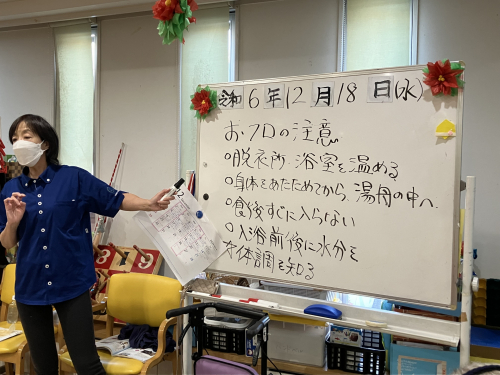 令和6年12月18日(水)
おフロの注意
○脱衣所・浴室を温める
○身体をあたためてから、湯舟の中へ
○食後すぐに入らない
○入浴前後に水分を
○体調を知る